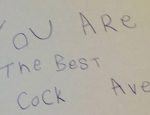 YOU ARe
The BesT
Cock Ave